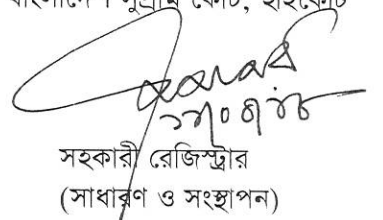 বাংলাদেশ সুপ্রীম কোর্ট, হাইকোর্ট
সহকারী রেজিস্ট্রার
(সাধারণ ও সংস্থাপন)